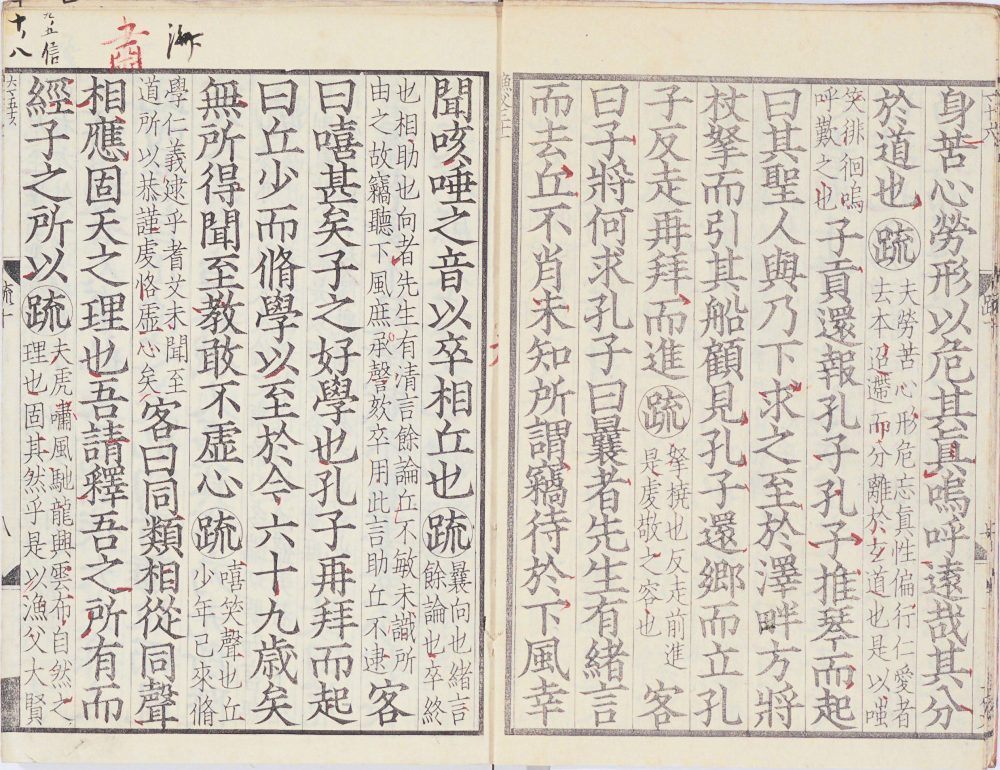 身苦心勞形以危其真嗚呼遠哉其分
於道也䟽夫勞苦心形危忘真性偏行仁愛者
去本迢遰而分離於玄道也是以嗤
笑徘徊嗚
呼歎之也
子貢還報孔子孔子推琴而起
曰其聖人與乃下求之至於澤畔方將
杖拏而引其船顧見孔子還鄉而立孔
子反走再拜而進䟽拏橈也反走前進
是虔敬之容也
客
曰子將何求孔子曰曩者先生有緒言
而去丘不肖未知所謂竊待於下風幸
聞咳唾之音以卒相丘也䟽曩向也緒言
餘論也卒終
也相助也向者先生有清言餘論丘不敏未識所
由之故竊聽下風庶承謦欬卒用此言助丘不逮
客
曰嘻甚矣子之好學也孔子再拜而起
曰丘少而脩學以至於今六十九歲矣
無所得聞至教敢不虛心䟽嘻笑聲也丘
少年已來脩
學仁義逮乎耆艾未聞至
道所以恭謹虔恪虛心矣
客曰同類相從同聲
相應固天之理也吾請釋吾之所有而
經子之所以䟽夫虎嘯風馳龍興雲布自然之
理也固其然乎是以漁父大賢
十八